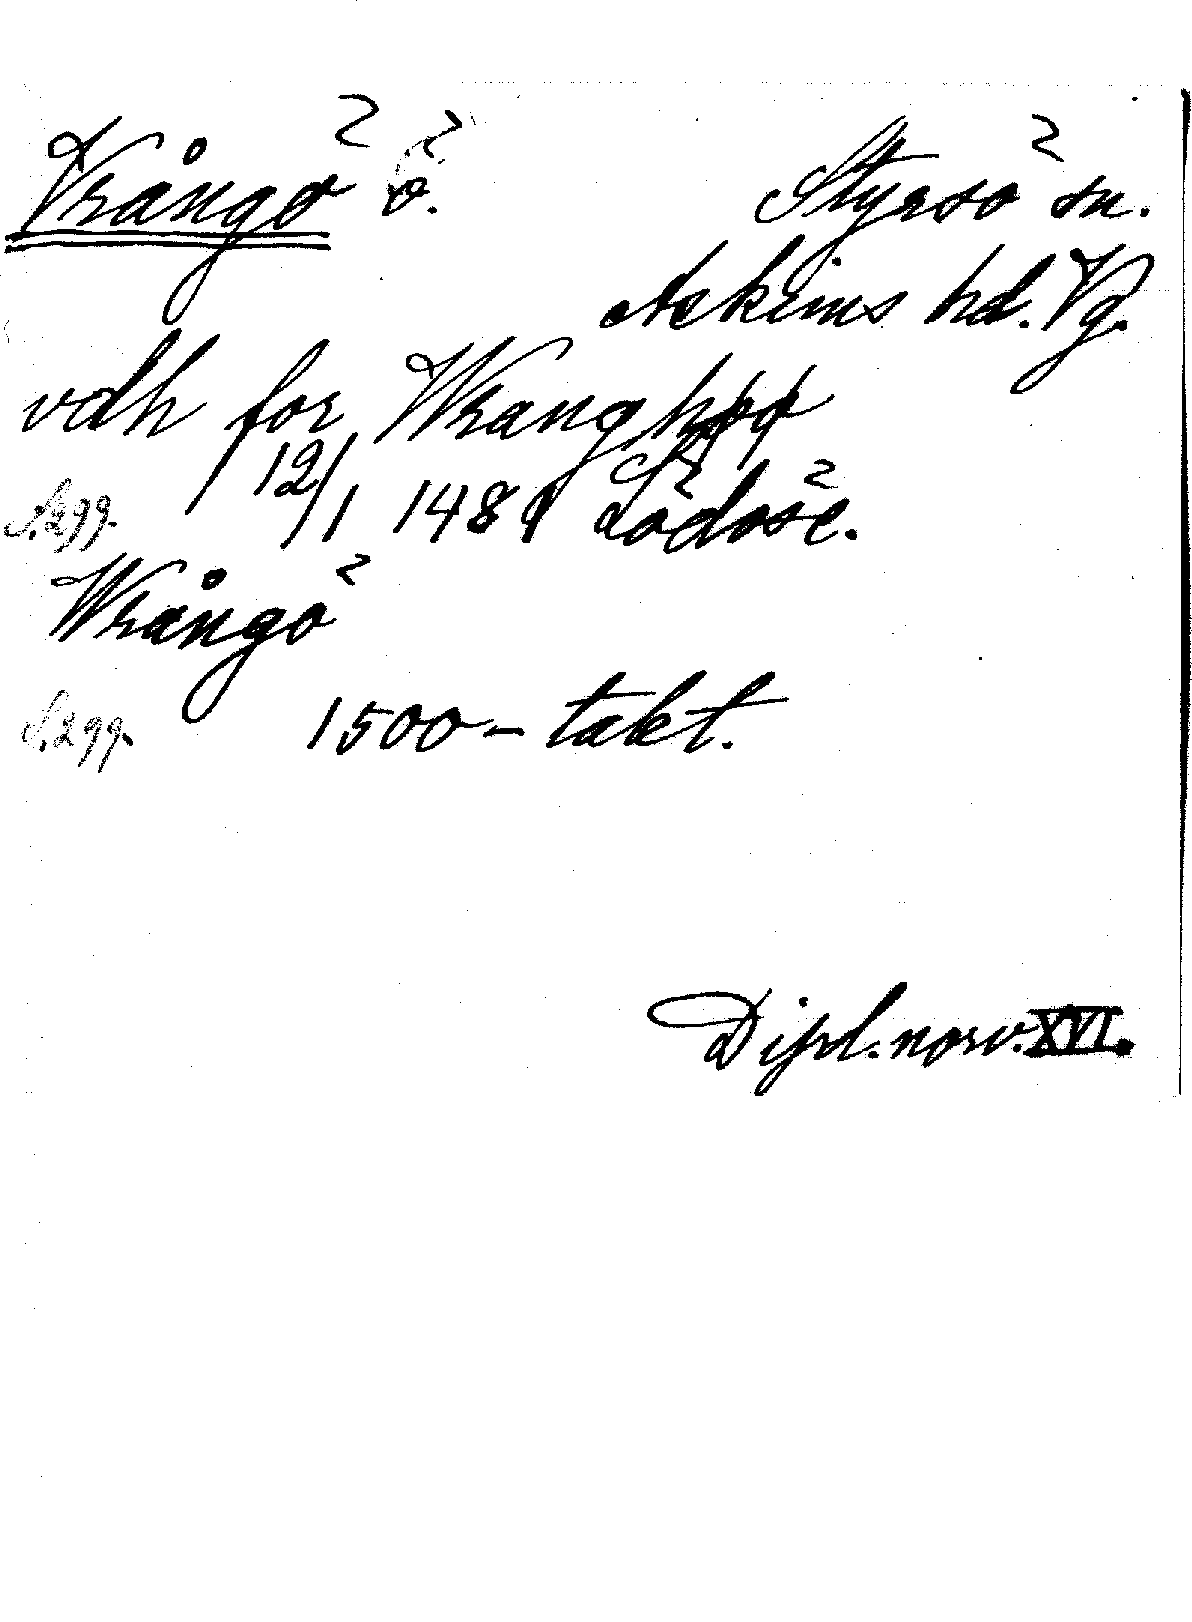 Vrångö ö. Styrsö sn.
Askims hd. Vg.
vdh for Wranghøø
12/1 1481 Lödöse.
S. 299.
Wrångö
S. 299. 1500-takt.
Dipl. norv. XVI.